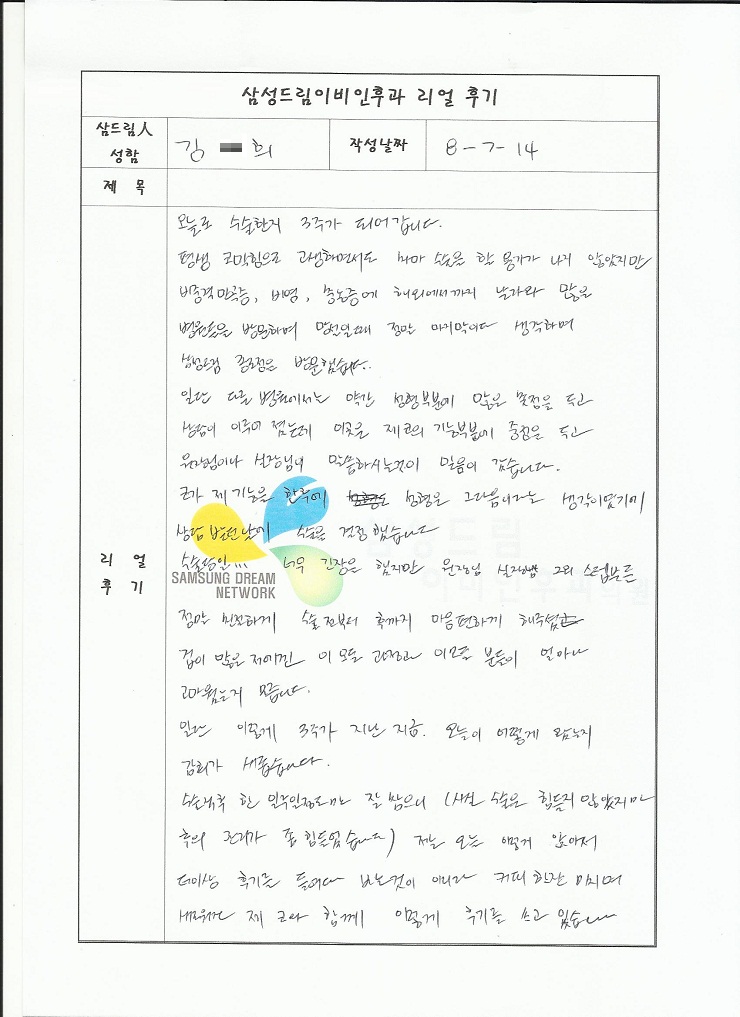 삼성드림이비인후과 리얼 후기
삼드림人 성함
김 희
작성날짜
8-7-14
제 목
리 얼 후 기
오늘로 수술한지 3주가 되어갑니다.
평생 코막힘으로 고생하면서도 차마 수술을 할 용기가 나지 않았지만
비중격만곡증, 비염, 축농증에 해외에서까지 날아와 많은
병원들을 방문하며 망설일때 정말 마지막이다 생각하며
삼성드림 방문했습니다.
일단 다른 병원에서는 약간 성형부분에 많은 촛점을 두고
상담이 이루어 졌는데 이곳은 제 코의 기능부분에 중점을 두고
원장님이나 실장님이 말씀하시는것이 믿음이 갔습니다.
코가 제 기능을 한후에 성형은 그다음이라는 생각이였기에
상담 받던날에 수술을 결정 했습니다
수술당일... 너무 긴장은 했지만 원장님 실장님 그외 스텝분들
정말 친절하게 수술 전부터 후까지 마음편하게 해주셨고
겁이 많은 저에겐 이 모든 과정과 이모든 분들이 얼마나
고마웠는지 모릅니다.
일단 이렇게 3주가 지난 지금. 오늘이 어떻게 왔는지
감회가 새롭습니다.
수술하후 한 일주일정도만 잘 참으니 (사실 수술은 힘들지 않았지만
후의 관리가 좀 힘들었습니다) 저는 오늘 이렇게 앉아서
더이상 후기를 들여다 보는것이 아니라 커피 한잔 마시며
새로워진 제 코와 함께 이렇게 후기를 쓰고 있습니다
SAMSUNG DREAM
NETWORK